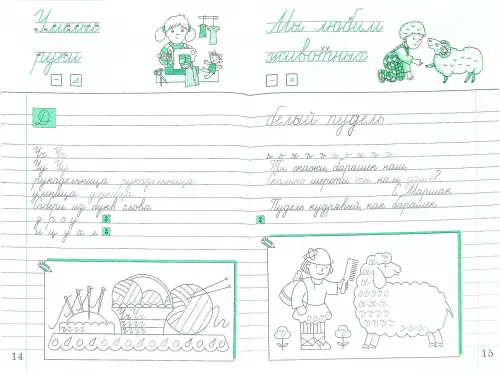 Умелые
руки
Мы любим
животных
Белый пудель
Уч Уч
Уу Уу
рукодельница рукодельница
умница умница
Собери из букв слова
д р п у
и ц у а л
Ты скажи, барашек наш,
Сколько шерсти ты нам дашь?
С. Маршак
Пудель кудрявый, как барашек.
14
15